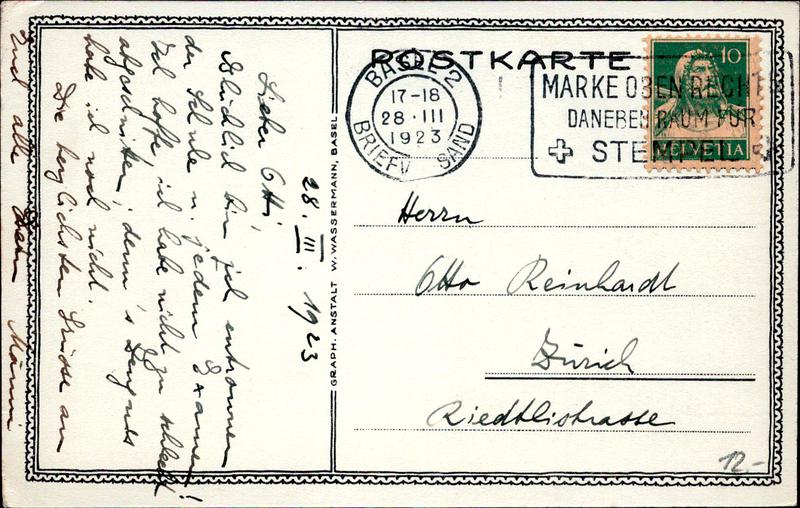 POSTKARTE
BASEL 2
17-18
28·III
1923
BRIEFV SAND
MARKE OBEN RECHTS
DANEBEN RAUM FÜR
STEMPEL
10
HELVETIA
28. III. 1923
Lieber Otti,
Glücklich bin ich entronnen
der Schule u. jedem Examen!
Ich hoffe ich habe nicht zu schlecht
abgeschnitten, denn 's Zeugnis
habe ich noch nicht.
Die herzlichsten Grüsse an
Dich und alle
GRAPH. ANSTALT W. WASSERMANN, BASEL
Herrn
Otto Reinhardt
Zürich
Riedtlistrasse
12.-